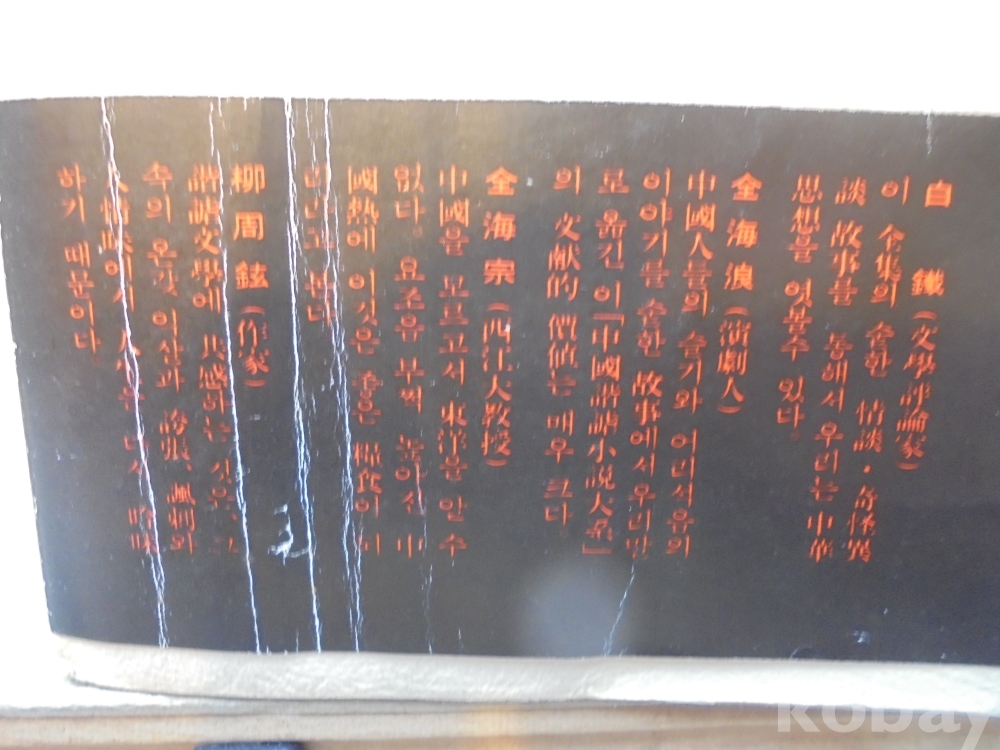 自 鐵 (文學評論家)
이 全集의 숱한 情談·奇怪異
談 故事를 통해서 우리는 中華
思想을 엿볼수 있다.
金 海 浪 (演劇人)
中國人들의 슬기와 어리석음의
이야기를 숱한 故事에서 우리말
로 옮긴 이 『中國諧謔小說大系』
의 文献的 價値는 매우 크다
全 海 宗 (西江大敎授)
中國을 모르고서 東洋을 알 수
없다. 요즈음 부쩍 높아진 中
國熱에 이것은 좋은 糧食이 되
리라고 본다
柳 周 鉉 (作家)
諧謔文學에 共感하는 것은,
속의 온갖 익살과 誇張, 諷刺와
하기 때문이다.
kobay